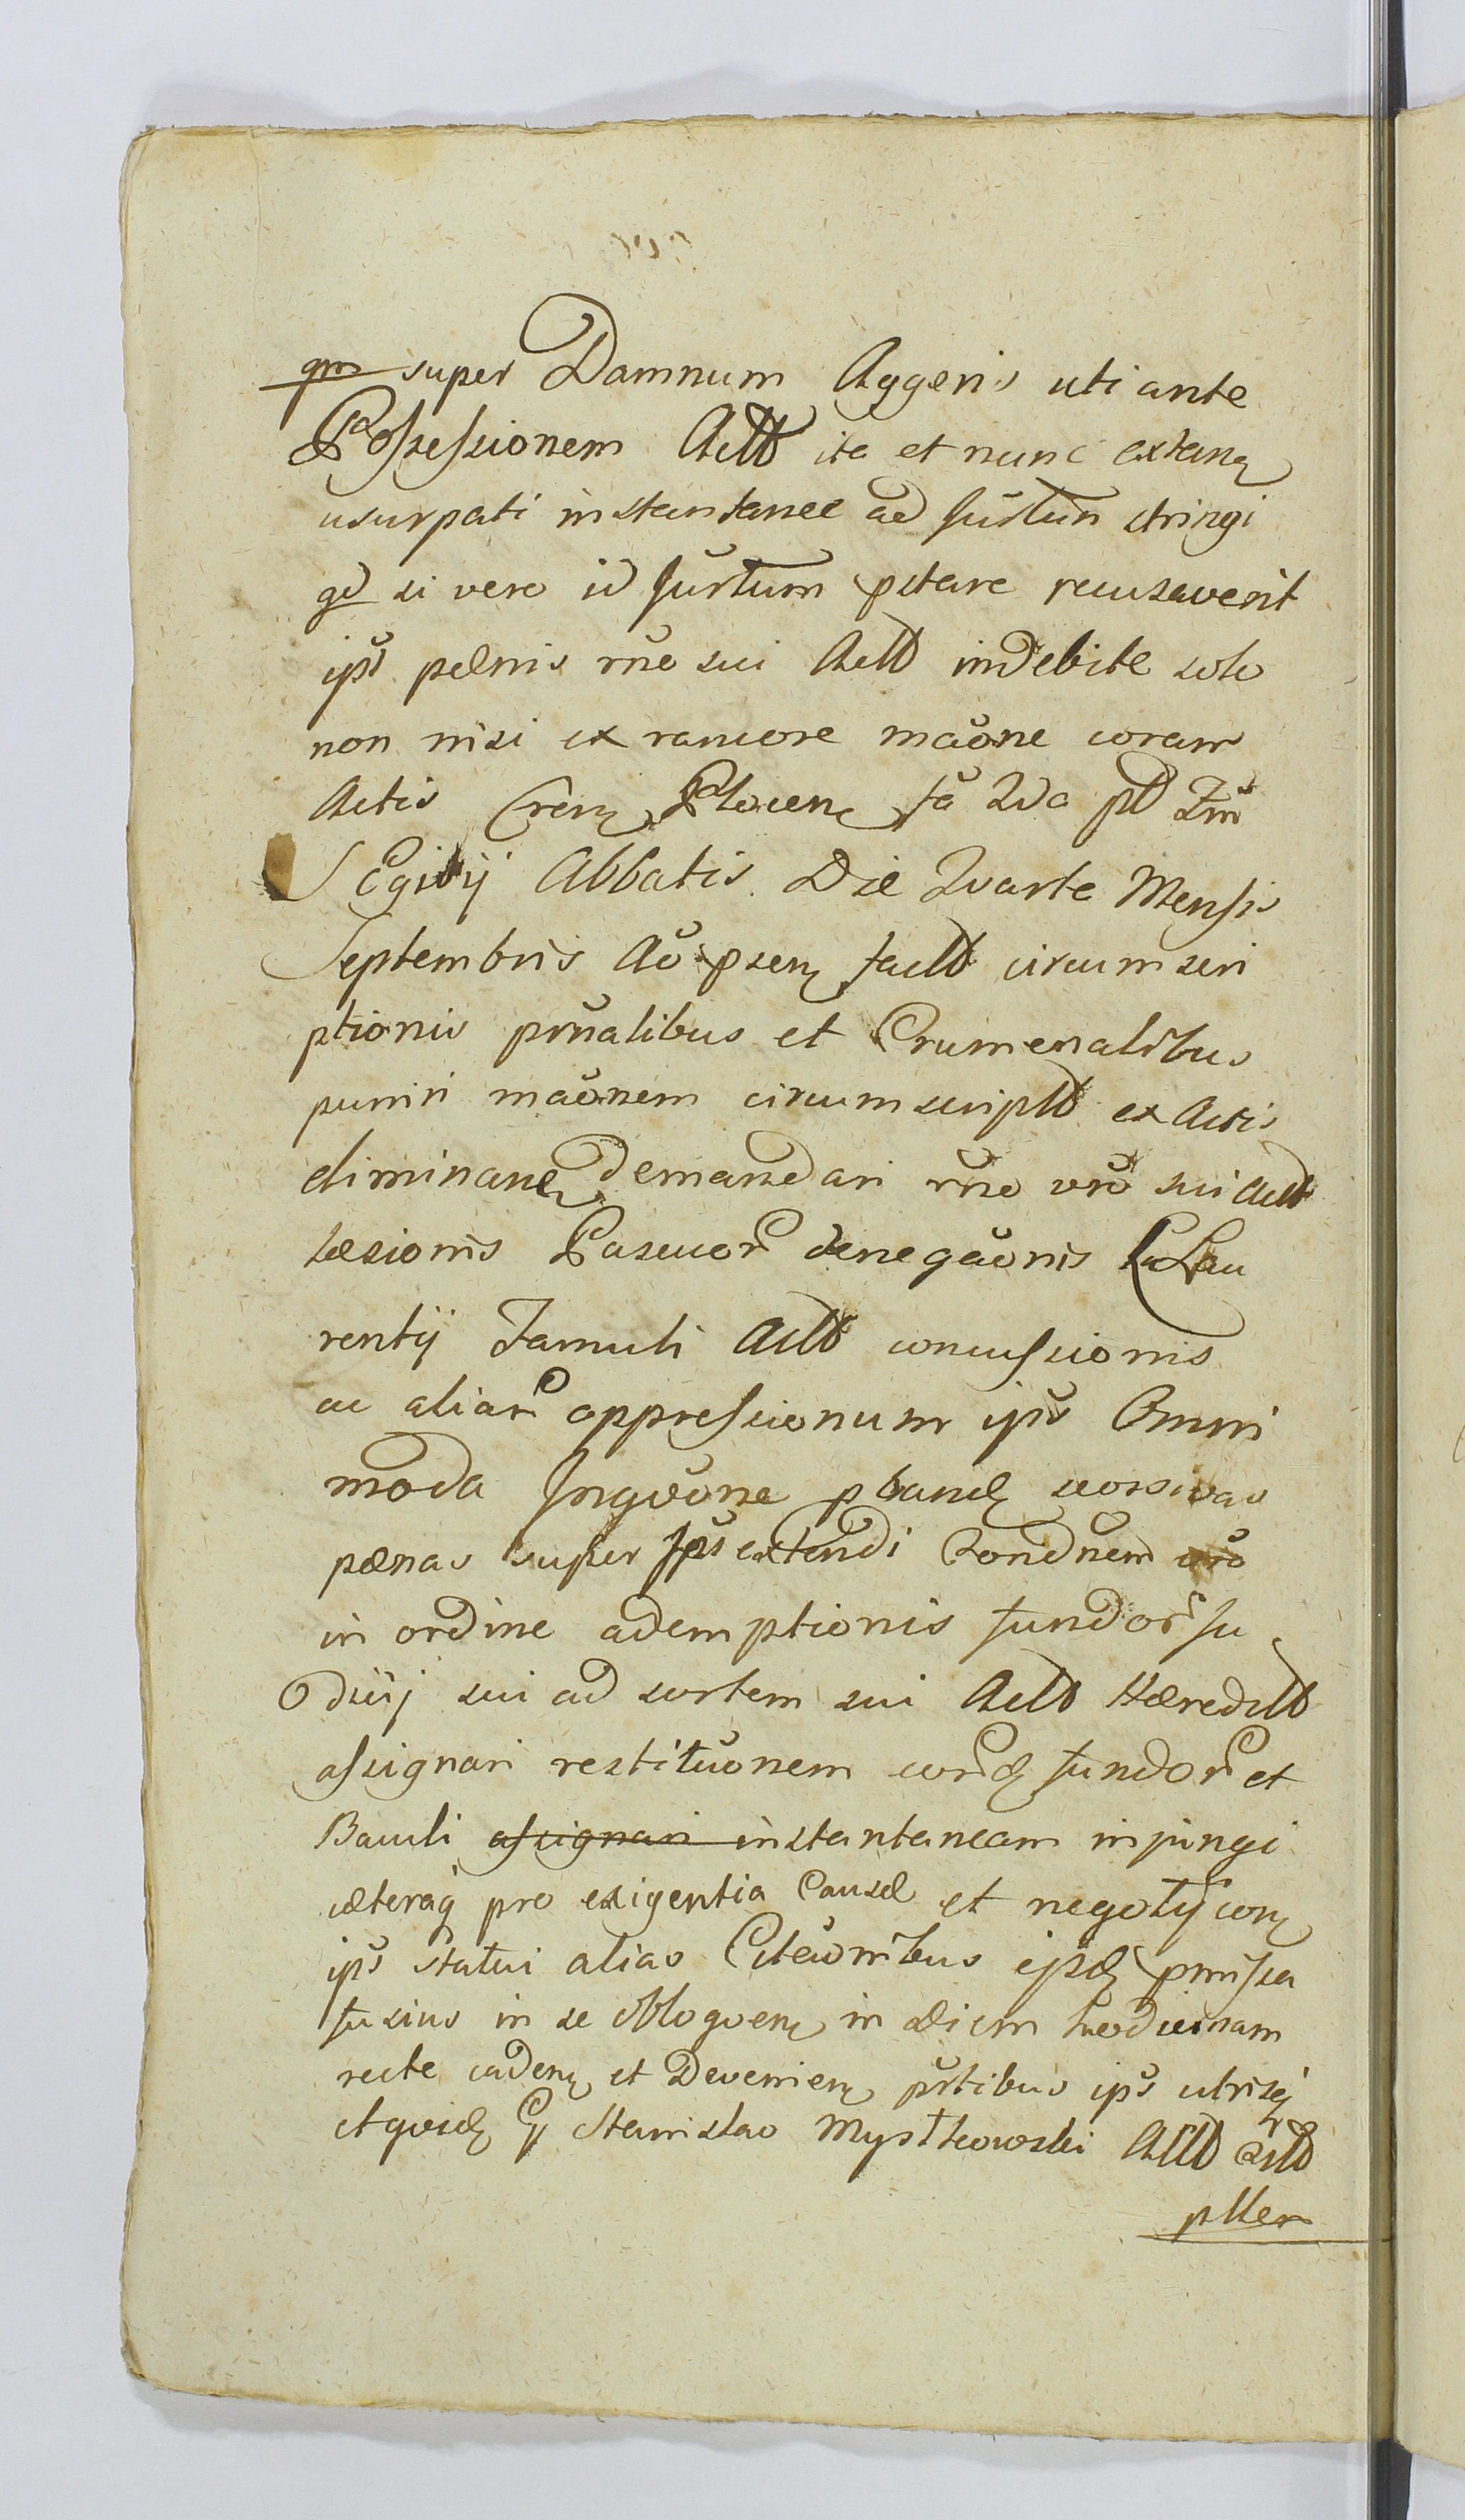 qm super Damnum Aggeris uti ante
Possessionem Actt ita et nunc extanꝫ
usurpati instantanee ad juštum stringi
qd si vero id juštum pstare recusaverit
ips pœnis rne sui Actt indebite solo
non nisi ex rancore maone coram
Actis Crenꝫ Plocenꝫ fa 2da pt Fm
S Egidij Abbatis Die Quarta Mensis
Septembris Ao psenꝫ factt circumscri
ptionis psnalibus et Crumenalibus
puniri maonem circumscriptt ex Actis
eliminanꝫ demandari rne vro sui Actt
læsionis Pascuor denegaonis Lau
rentij Famuli Actt concussionis
ac aliar oppressionum ips Omni
moda Inqvone pbandꝫ seorsivas
pœnas super Ips extendi Condnem vro
in ordine ademptionis fundor fu
diij sui ad sortem sui Actt Hæreditt
assignari restituonem eorꝫ fundor et
Bauli assignari instantaneam injungi
cæteraq pro exigentia Causæ et negotij conꝫ
ips statui alias Citaonibus ejsdꝫ pmissa
fusius in se obloqvenꝫ in Diem hodiernam
recte cadenꝫ et Devenienꝫ pštibus ips utrisqꝫ
et qvisdꝫ G Stanislao Mystkowski Actt
ptter